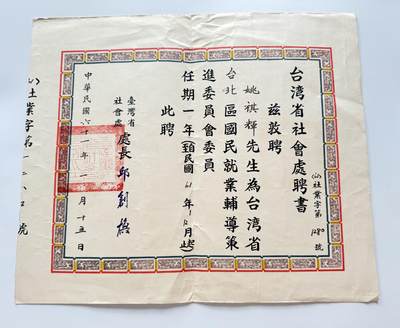 台湾省社會處聘書
社業字第1280號
茲敦聘
姚祺輝先生為台湾省
台北區國民就業輔導策
進委員會委員
任期一年至民國61年12月止
此聘
臺灣省
社會處
處長邱創煥
中華民國六十一年一月十五日
社業字第一二八〇號